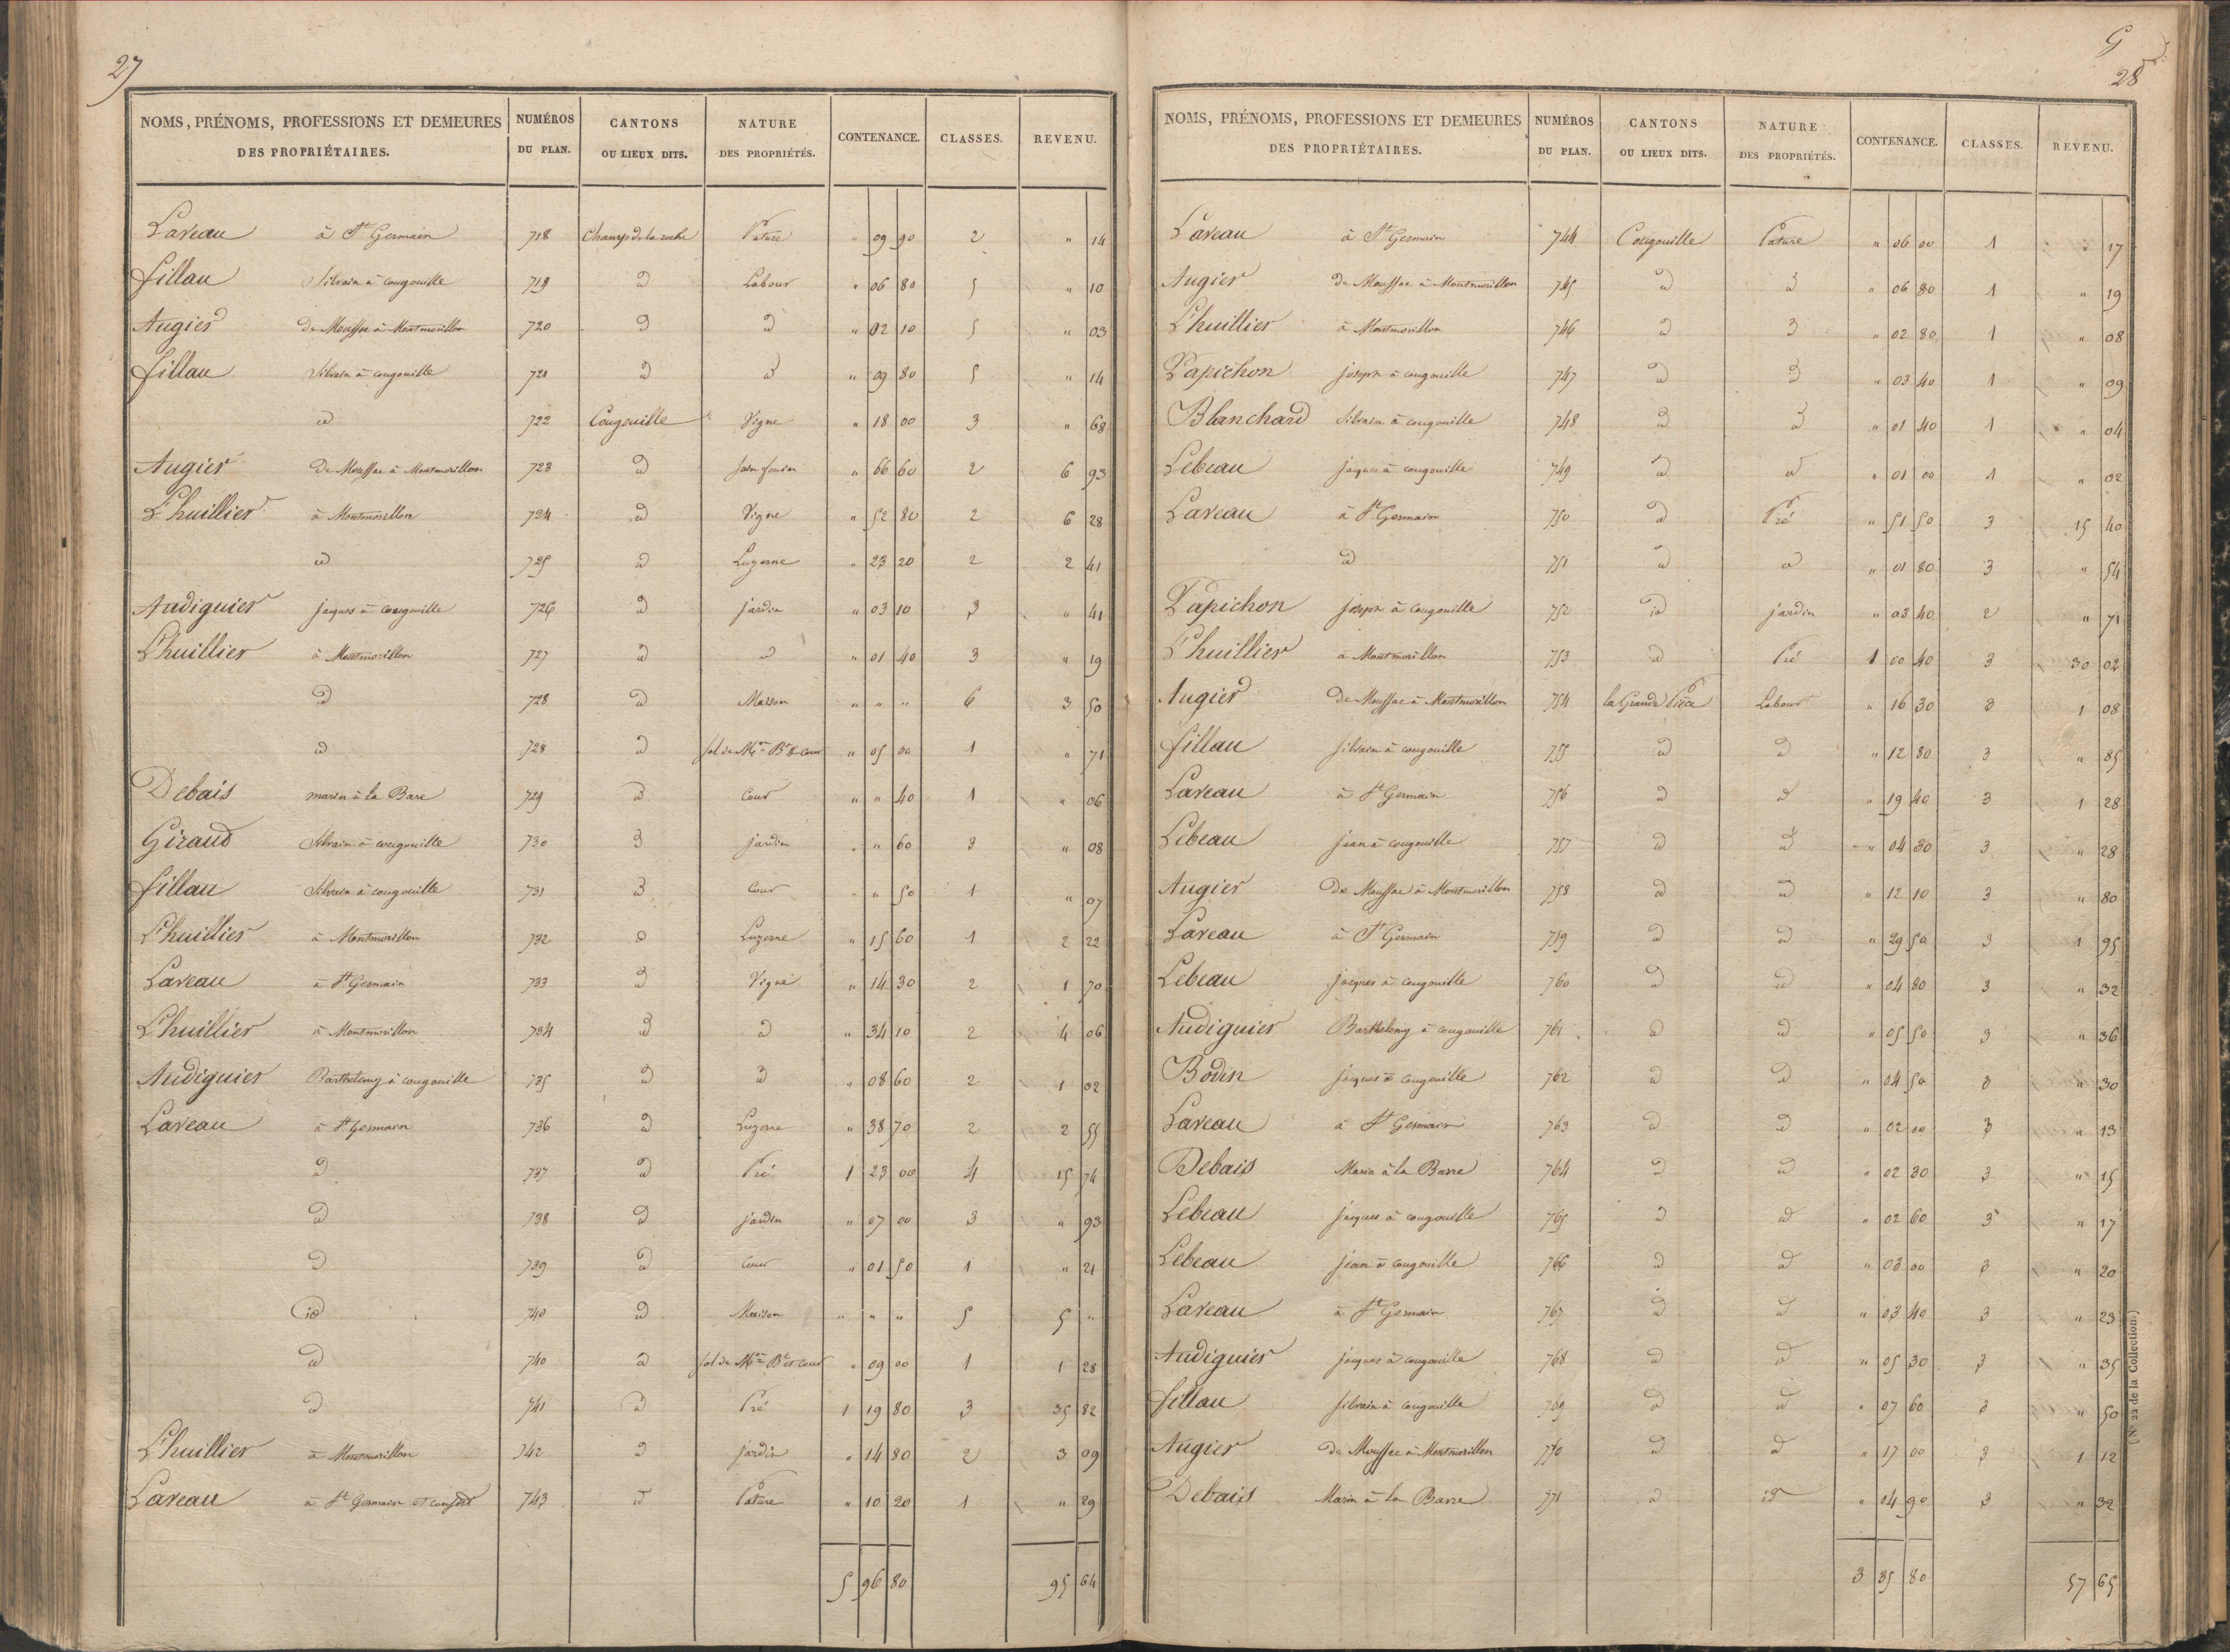 27
NOMS, PRÉNOMS, PROFESSIONS ET DEMEURES DES PROPRIÉTAIRES. NUMÉROS DU PLAN. CANTONS OU LIEUX DITS. NATURE DES PROPRIÉTÉS. CONTENANCE. CLASSES. REVENU.
Laveau à St Germain 718 Champ de la roche Pature " 09 90 2 " 14
fillau Silvain à cougouille 719 d Labour " 06 80 5 " 10
Augier De Moussac à Montmorillon 720 d d " 02 10 5 " 03
fillau Silvain à cougouille 721 d d " 09 80 5 " 14
d 722 Cougouille Vigne " 18 00 3 " 68
Augier De Moussac à Montmorillon 723 d " 66 60 2 6 93
L'huillier à Montmorillon 724 d Vigne " 52 80 2 6 28
d 725 d Luzerne " 23 20 2 2 41
Audiguier jaques à cougouille 726 d jardin " 03 10 3 " 41
L'huillier à Montmorillon 727 d d " 01 40 3 " 19
d 728 d Maison " " " 6 3 50
d 728 d sol de Mon Bt & cour " 05 00 1 " 71
Debais marin à la Bare 729 d Cour " " 40 1 " 06
Giraud Silvain à cougouille 730 d jardin " " 60 3 " 08
fillau Silvain à cougouille 731 d Cour " " 50 1 " 07
L'huillier à Montmorillon 732 d Luzerne " 15 60 1 2 22
Laveau à St Germain 733 d Vigne " 14 30 2 1 70
L'huillier à Montmorillon 734 d d " 34 10 2 4 06
Audiguier Barthelemy à cougouille 735 d d " 08 60 2 1 02
Laveau à St Germain 736 d Luzerne " 38 70 2 2 55
d 737 d Pré 1 23 00 4 15 74
d 738 d jardin " 07 00 3 " 93
d 739 d Cour " 01 50 1 " 21
id 740 d Maison " " " 5 5 "
d 740 d sol de Mon Bt et cour " 09 00 1 1 28
d 741 d Pré 1 19 80 3 35 82
L'huillier à Montmorillon 742 d jardin " 14 80 2 3 09
Laveau à St Germain et 743 d Pature " 10 20 1 " 29
5 96 80 95 64
G
28
NOMS, PRÉNOMS, PROFESSIONS ET DEMEURES DES PROPRIÉTAIRES. NUMÉROS DU PLAN. CANTONS OU LIEUX DITS. NATURE DES PROPRIÉTÉS. CONTENANCE. CLASSES. REVENU.
Laveau à St Germain 744 Cougouille Pature " 06 00 1 " 17
Augier de Moussac à Montmorillon 745 d d " 06 80 1 " 19
L'huillier à Montmorillon 746 d d " 02 80 1 " 08
Papichon joseph à cougouille 747 d d " 03 40 1 " 09
Blanchard Silvain à cougouille 748 d d " 01 40 1 " 04
Lebeau jaques à cougouille 749 d d " 01 00 1 " 02
Laveau à St Germain 750 d Pré " 51 50 3 15 40
d 751 d d " 01 80 3 " 54
Papichon joseph à cougouille 752 d jardin " 03 40 2 " 71
L'huillier à Montmorillon 753 d Pré 1 00 40 3 30 02
Augier De Moussac à Montmorillon 754 la Grande Pièce Labour " 16 30 3 1 08
fillau silvain à cougouille 755 d d " 12 80 3 " 85
Laveau à St Germain 756 d d " 19 40 3 1 28
Lebeau jean à cougouille 757 d d " 04 30 3 " 28
Augier De Moussac à Montmorillon 758 d d " 12 10 3 " 80
Laveau à St Germain 759 d d " 29 50 3 1 95
Lebeau jaques à cougouille 760 d d " 04 80 3 " 32
Audiguier Barthelemy à cougouille 761 d d " 05 50 3 " 36
Bodin jaques à cougouille 762 d d " 04 50 3 " 30
Laveau à St Germain 763 d d " 02 00 3 " 13
Debais Marin à la Barre 764 d d " 02 30 3 " 15
Lebeau jaques à cougouille 765 d d " 02 60 3 " 17
Lebeau jean à cougouille 766 d d " 03 00 3 " 20
Laveau à St Germain 767 d d " 03 40 3 " 23
Audiguier jaques à cougouille 768 d d " 05 30 3 " 35
fillau silvain à cougouille 769 d d " 07 60 3 " 50
Augier de Moussac à Montmorillon 770 d d " 17 00 3 1 12
Debais Marin à la Barre 771 d id " 04 90 3 " 32
3 85 80 57 65
(No 22 de la Collection.)